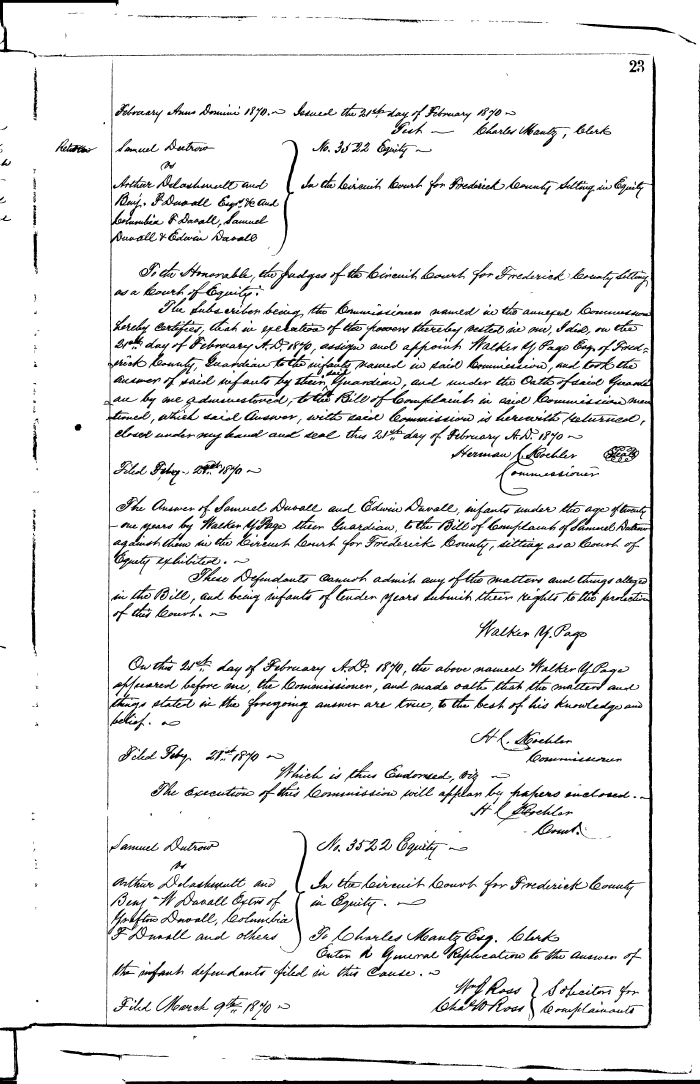 23
February Anno Domini 1870.~ Issued the 21st day of February 1870~
Test — Charles Mantz, Clerk
Return
Samuel Dutrow
vs
Arthur Delashmutt and
Benj. F Duvall Exrs. &c and
Columbia F Duvall, Samuel
Duvall & Edwin Duvall
No. 3522 Equity ~
In the Circuit Court for Frederick County Sitting in Equity
To the Honorable, the Judges of the Circuit Court for Frederick County Sitting
as a Court of Equity.
The Subscriber being, the Commissioner named in the annexed Commission
hereby certifies, that in execution of the powers thereby vested in me, I did, on the
21st day of February A.D. 1870, assign and appoint Walker Y Page Esq. of Fred-
rick County, Guardian to the infants named in said Commission, and took the
Answer of said infants by their said Guardian, and under the Oath of said Guardi
an by me administered, to the Bill of Complaint in said Commission men
tioned, which said Answer, with said Commission is herewith returned,
closed under my hand and seal this 21st day of February A.D. 1870 ~
Herman L. Kochler Seal
Commissioner
Filed Feby. 21st 1870 ~
The Answer of Samuel Duvall and Edwin Duvall, infants under the age of twenty
-one years by Walker Y. Page their Guardian, to the Bill of Complaint of Samuel Dutrow
against them in the Circuit Court for Frederick County, sitting as a Court of
Equity exhibited. ~
These Defendants cannot admit any of the matters and things alleged
in the Bill, and being infants of tender years submit their rights to the protection
of this Court. ~
Walker Y. Page
On this 21st day of February A.D. 1870, the above named Walker Y. Page
appeared before me, the Commissioner, and made oath that the matters and
things stated in the foregoing answer are true, to the best of his knowledge and
belief. ~
H L. Kochler
Commissioner
Filed Feby. 21st 1870 ~
Which is thus Endorsed, viz ~
The execution of this Commission will appear by papers enclosed. ~
H L Kochler
Comr.
Samuel Dutrow
vs
Arthur Delashmutt and
Benj - W Duvall Extrs of
Grafton Duvall, Columbia
F Duvall and others
No. 3522 Equity ~
In the Circuit Court for Frederick County
in Equity. ~
To Charles Mantz Esq. Clerk
Enter A General Replication to the Answer of
the infant defendants filed in this Cause. ~
Wm J Ross
Chas W Ross
Solicitors for
Complainants
Filed March 9th 1870 ~